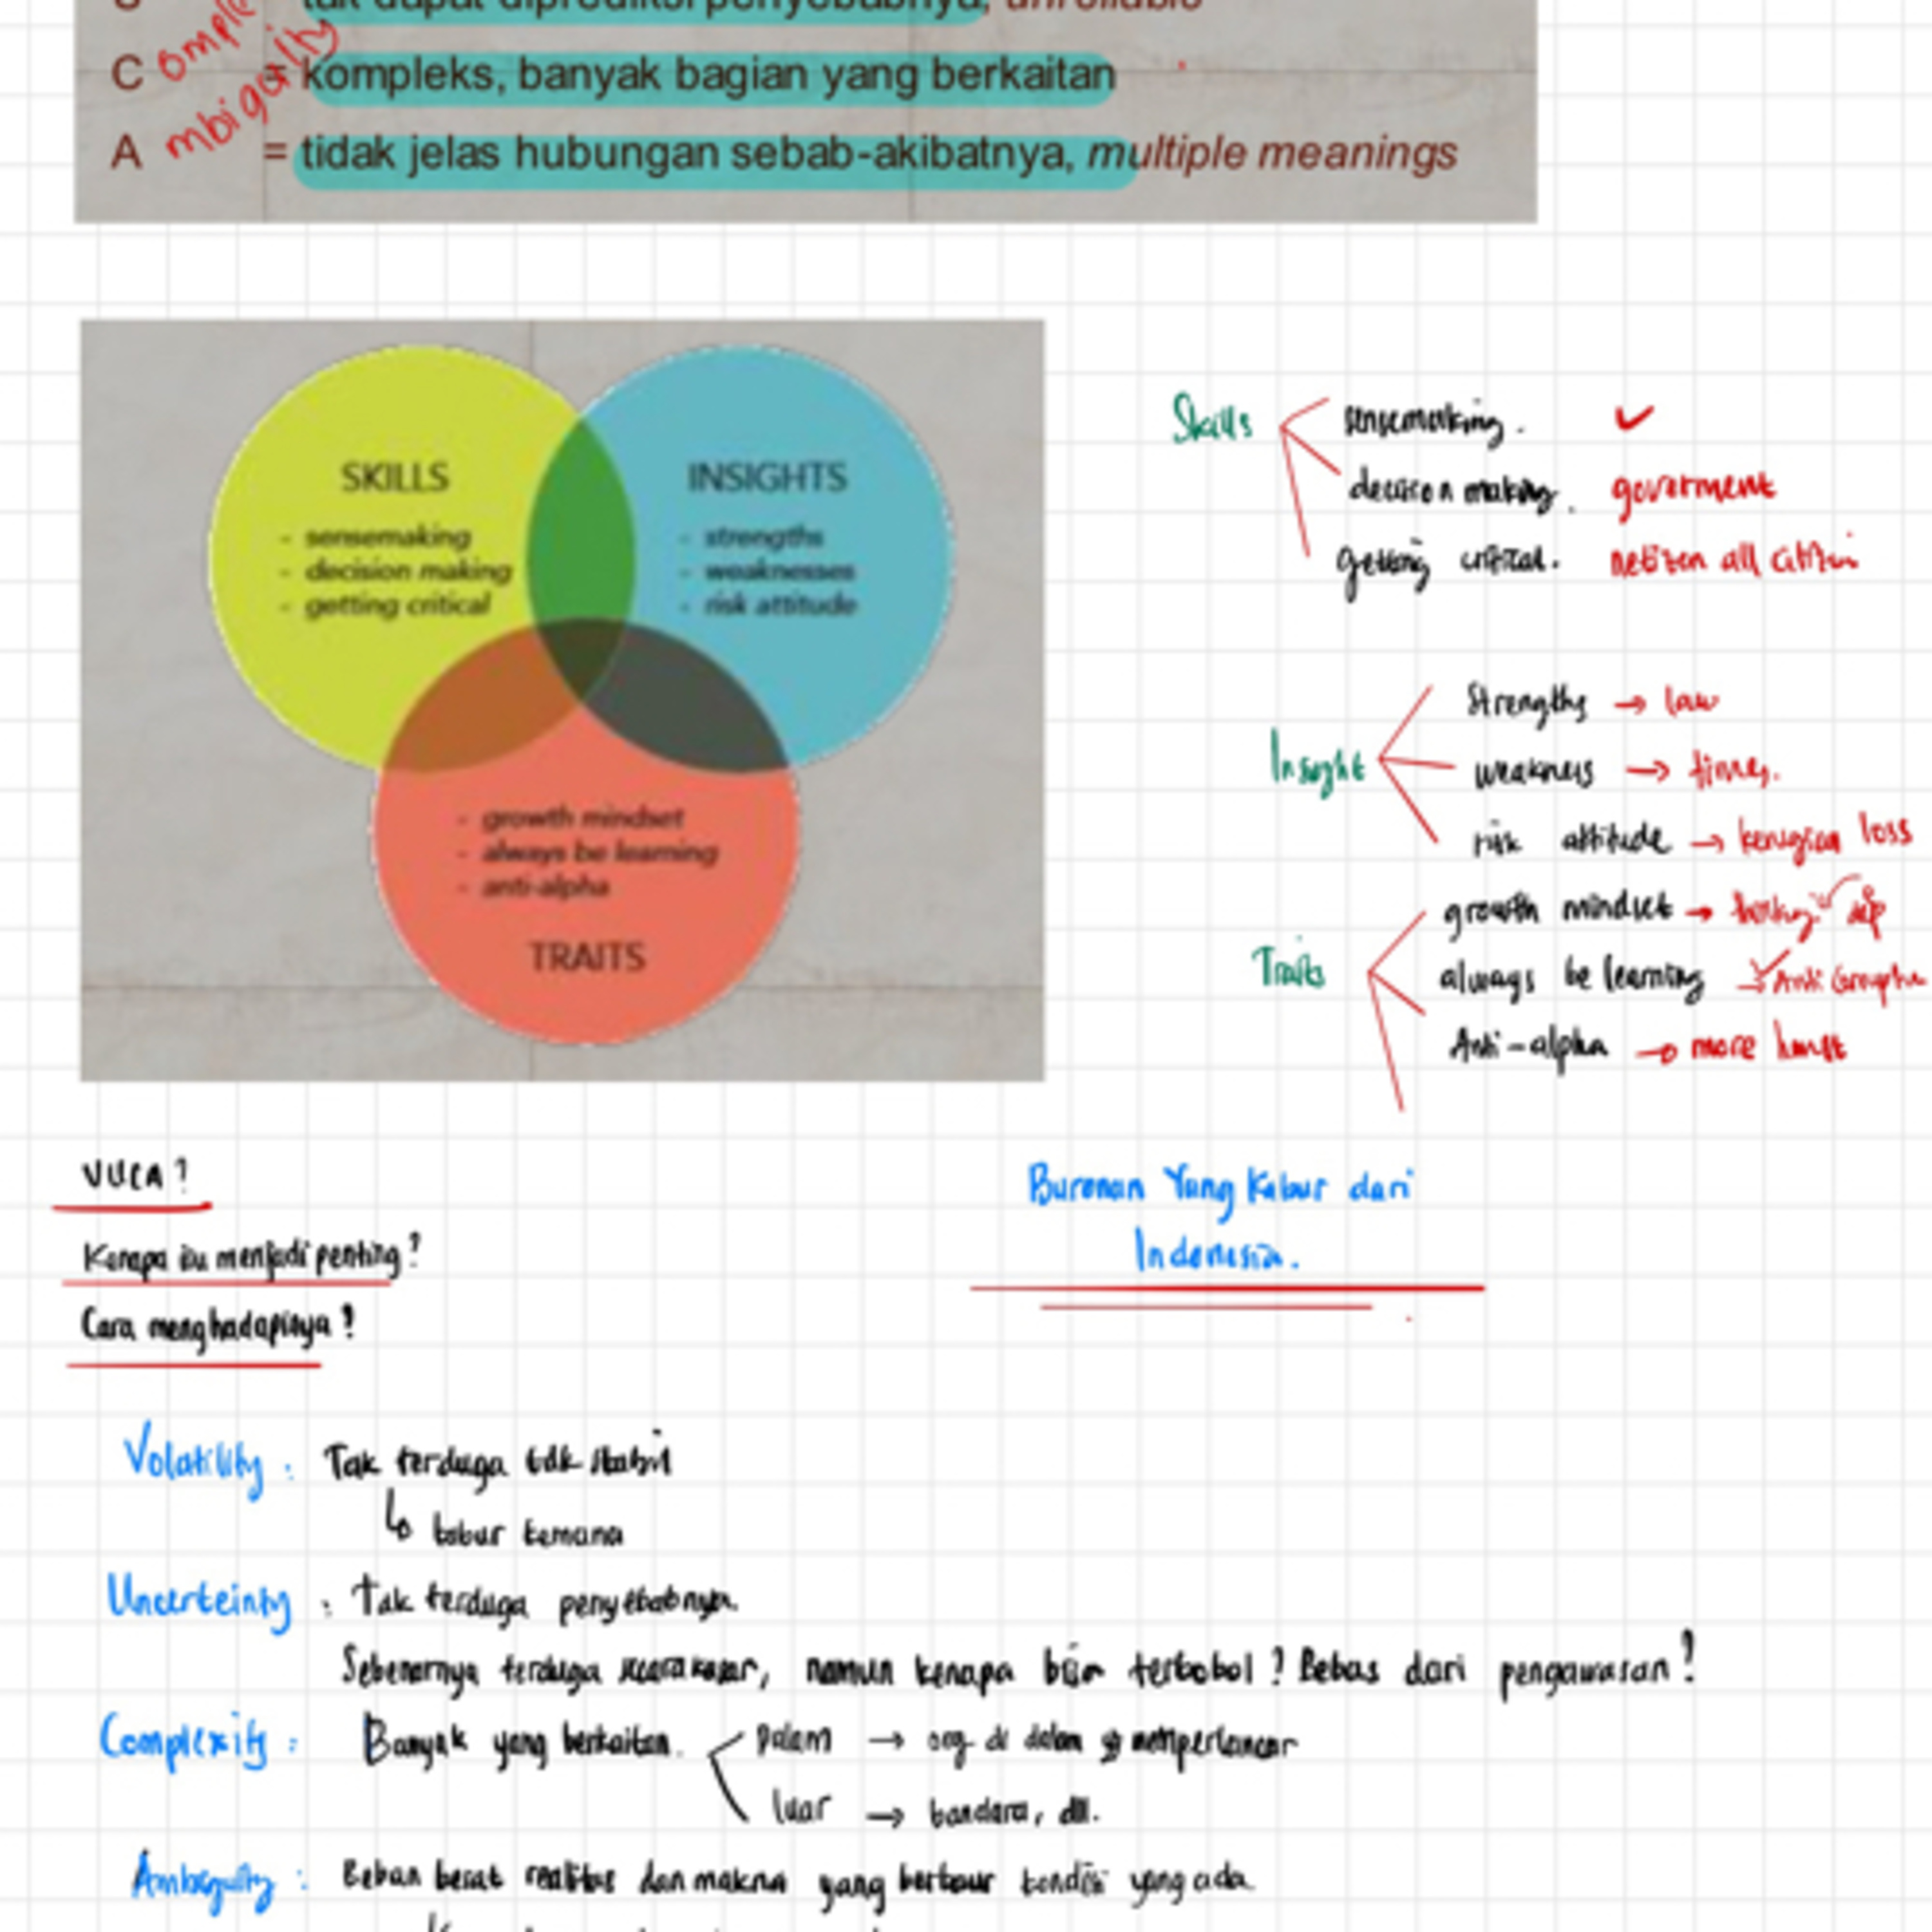 tak dapat diprediksi penyebabnya, unreliable
C = kompleks, banyak bagian yang berkaitan
A mbiguity = tidak jelas hubungan sebab-akibatnya, multiple meanings
SKILLS
- sensemaking
- decision making
- getting critical
INSIGHTS
- strengths
- weaknesses
- risk attitude
- growth mindset
- always be learning
- anti-alpha
TRAITS
Skills
sensemaking. ✓
decision making. goverment
getting critical. netizen all
Insight
Strengths → law
weakness → times.
risk attitude → kerugian loss
Traits
growth mindset →
always be learning → Anti
Anti-alpha → more
VUCA?
Kenapa itu menjadi penting?
Cara menghadapinya?
Buronan Yang Kabur dari
Indonesia.
Volatility : Tak terduga tdk stabil
kabur kemana
Uncerteinty : Tak terduga penyebabnya.
Sebenarnya terduga secara kasar, namun kenapa bisa terbobol? Bebas dari pengawasan?
Complexity : Banyak yang berkaitan.
Dalam → org di dalam yg memperlancar
luar → bandara, dll.
Ambiguity : Beban berat realitas dan makna yang berbaur kondisi yang ada.